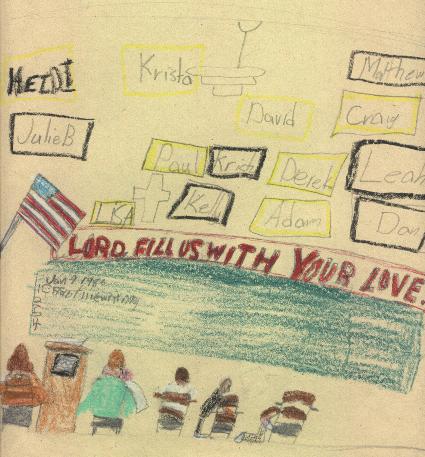 HEIDI
Krista
Matthew
David
Craig
JulieB
Paul
Krist
Derek
Leah
LISA
Kell
Adam
Dan
LORD, FILL US WITH YOUR LOVE.
Jan 9